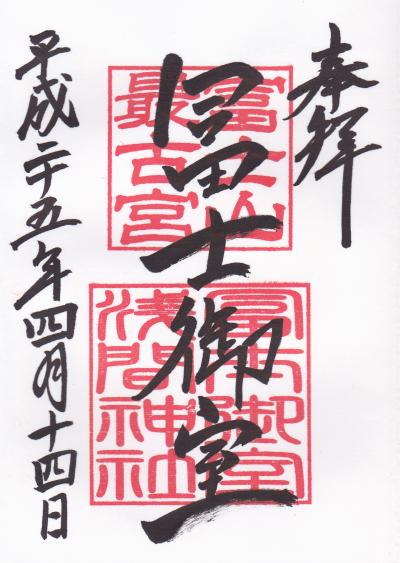 奉拝
冨士御室
平成二十五年四月十四日
富士山
最古宮
冨士御室
浅間神社